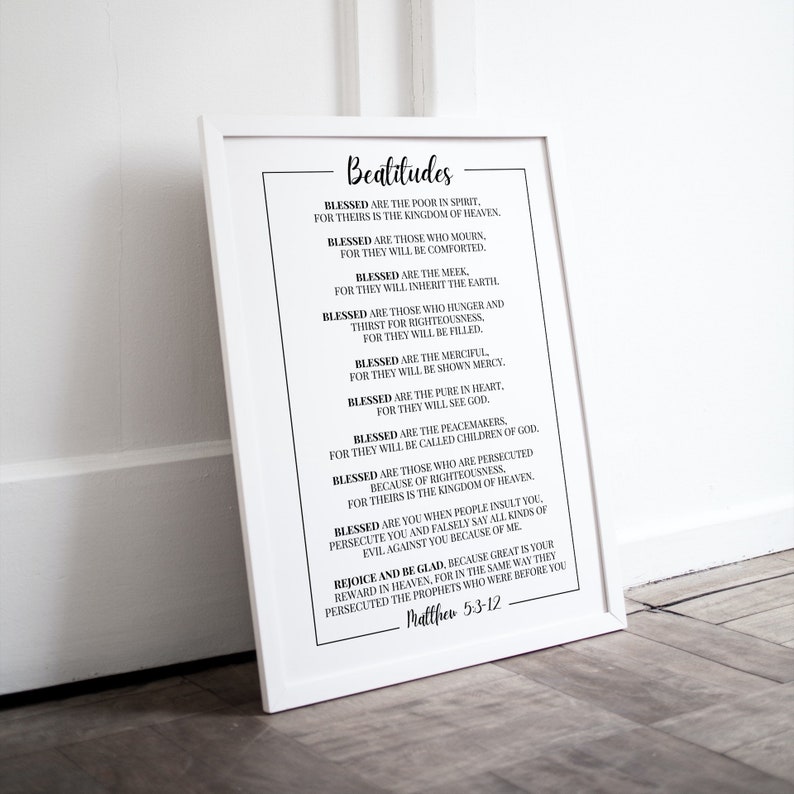 Beatitudes
BLESSED ARE THE POOR IN SPIRIT,
FOR THEIRS IS THE KINGDOM OF HEAVEN.
BLESSED ARE THOSE WHO MOURN,
FOR THEY WILL BE COMFORTED.
BLESSED ARE THE MEEK,
FOR THEY WILL INHERIT THE EARTH.
BLESSED ARE THOSE WHO HUNGER AND
THIRST FOR RIGHTEOUSNESS,
FOR THEY WILL BE FILLED.
BLESSED ARE THE MERCIFUL,
FOR THEY WILL BE SHOWN MERCY.
BLESSED ARE THE PURE IN HEART,
FOR THEY WILL SEE GOD.
BLESSED ARE THE PEACEMAKERS,
FOR THEY WILL BE CALLED CHILDREN OF GOD.
BLESSED ARE THOSE WHO ARE PERSECUTED
BECAUSE OF RIGHTEOUSNESS,
FOR THEIRS IS THE KINGDOM OF HEAVEN.
BLESSED ARE YOU WHEN PEOPLE INSULT YOU,
PERSECUTE YOU AND FALSELY SAY ALL KINDS OF
EVIL AGAINST YOU BECAUSE OF ME.
REJOICE AND BE GLAD, BECAUSE GREAT IS YOUR
REWARD IN HEAVEN, FOR IN THE SAME WAY THEY
PERSECUTED THE PROPHETS WHO WERE BEFORE YOU
Matthew 5:3-12